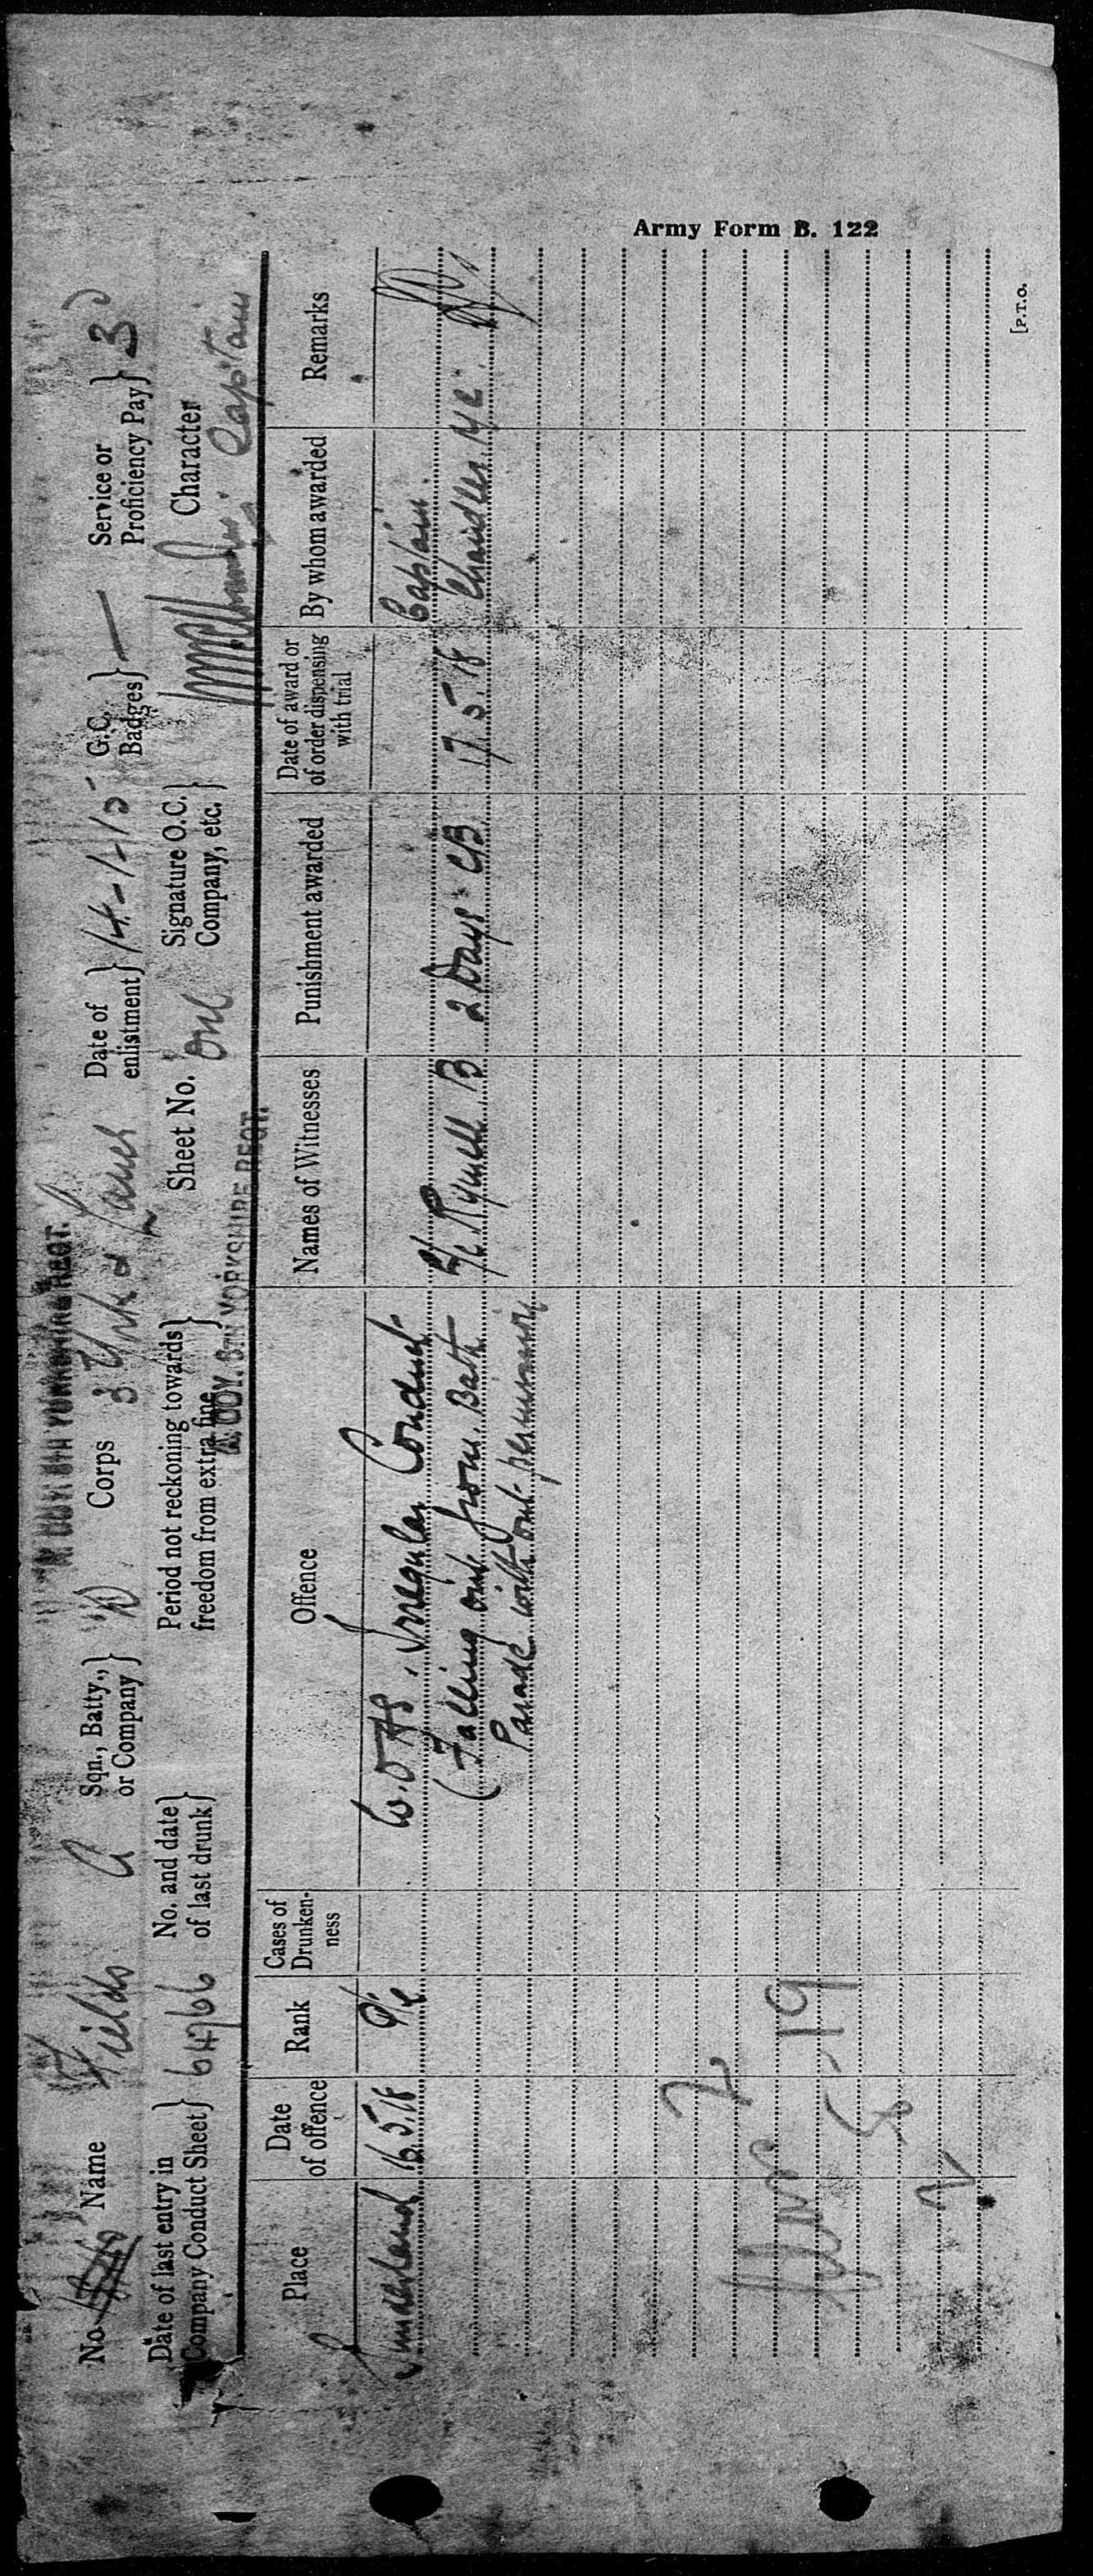 Army Form B. 122
No. Name Fields G Sqn., Batty., or Company} "D" Corps 3 York & Lancs Date of enlistment} 14-4-15 G.C. Badges} — Service or Proficiency Pay} 3
Date of last entry in Company Conduct Sheet} 64766 No. and date of last drunk} Period not reckoning towards freedom from extra fine} Sheet No. One Signature O.C. Company, etc.} Captain Character
COY. 8TH YORKSHIRE REGT.
Place Date of offence Rank Cases of Drunkenness Offence Names of Witnesses Punishment awarded Date of award or of order dispensing with trial By whom awarded Remarks
Sunderland 16.5.18 P/e W.O.A.S. Irregular Conduct Captain.
(Falling out from Bath 2 Days CB 17.5.18 Chandler
Parade with out permission
[P.T.O.